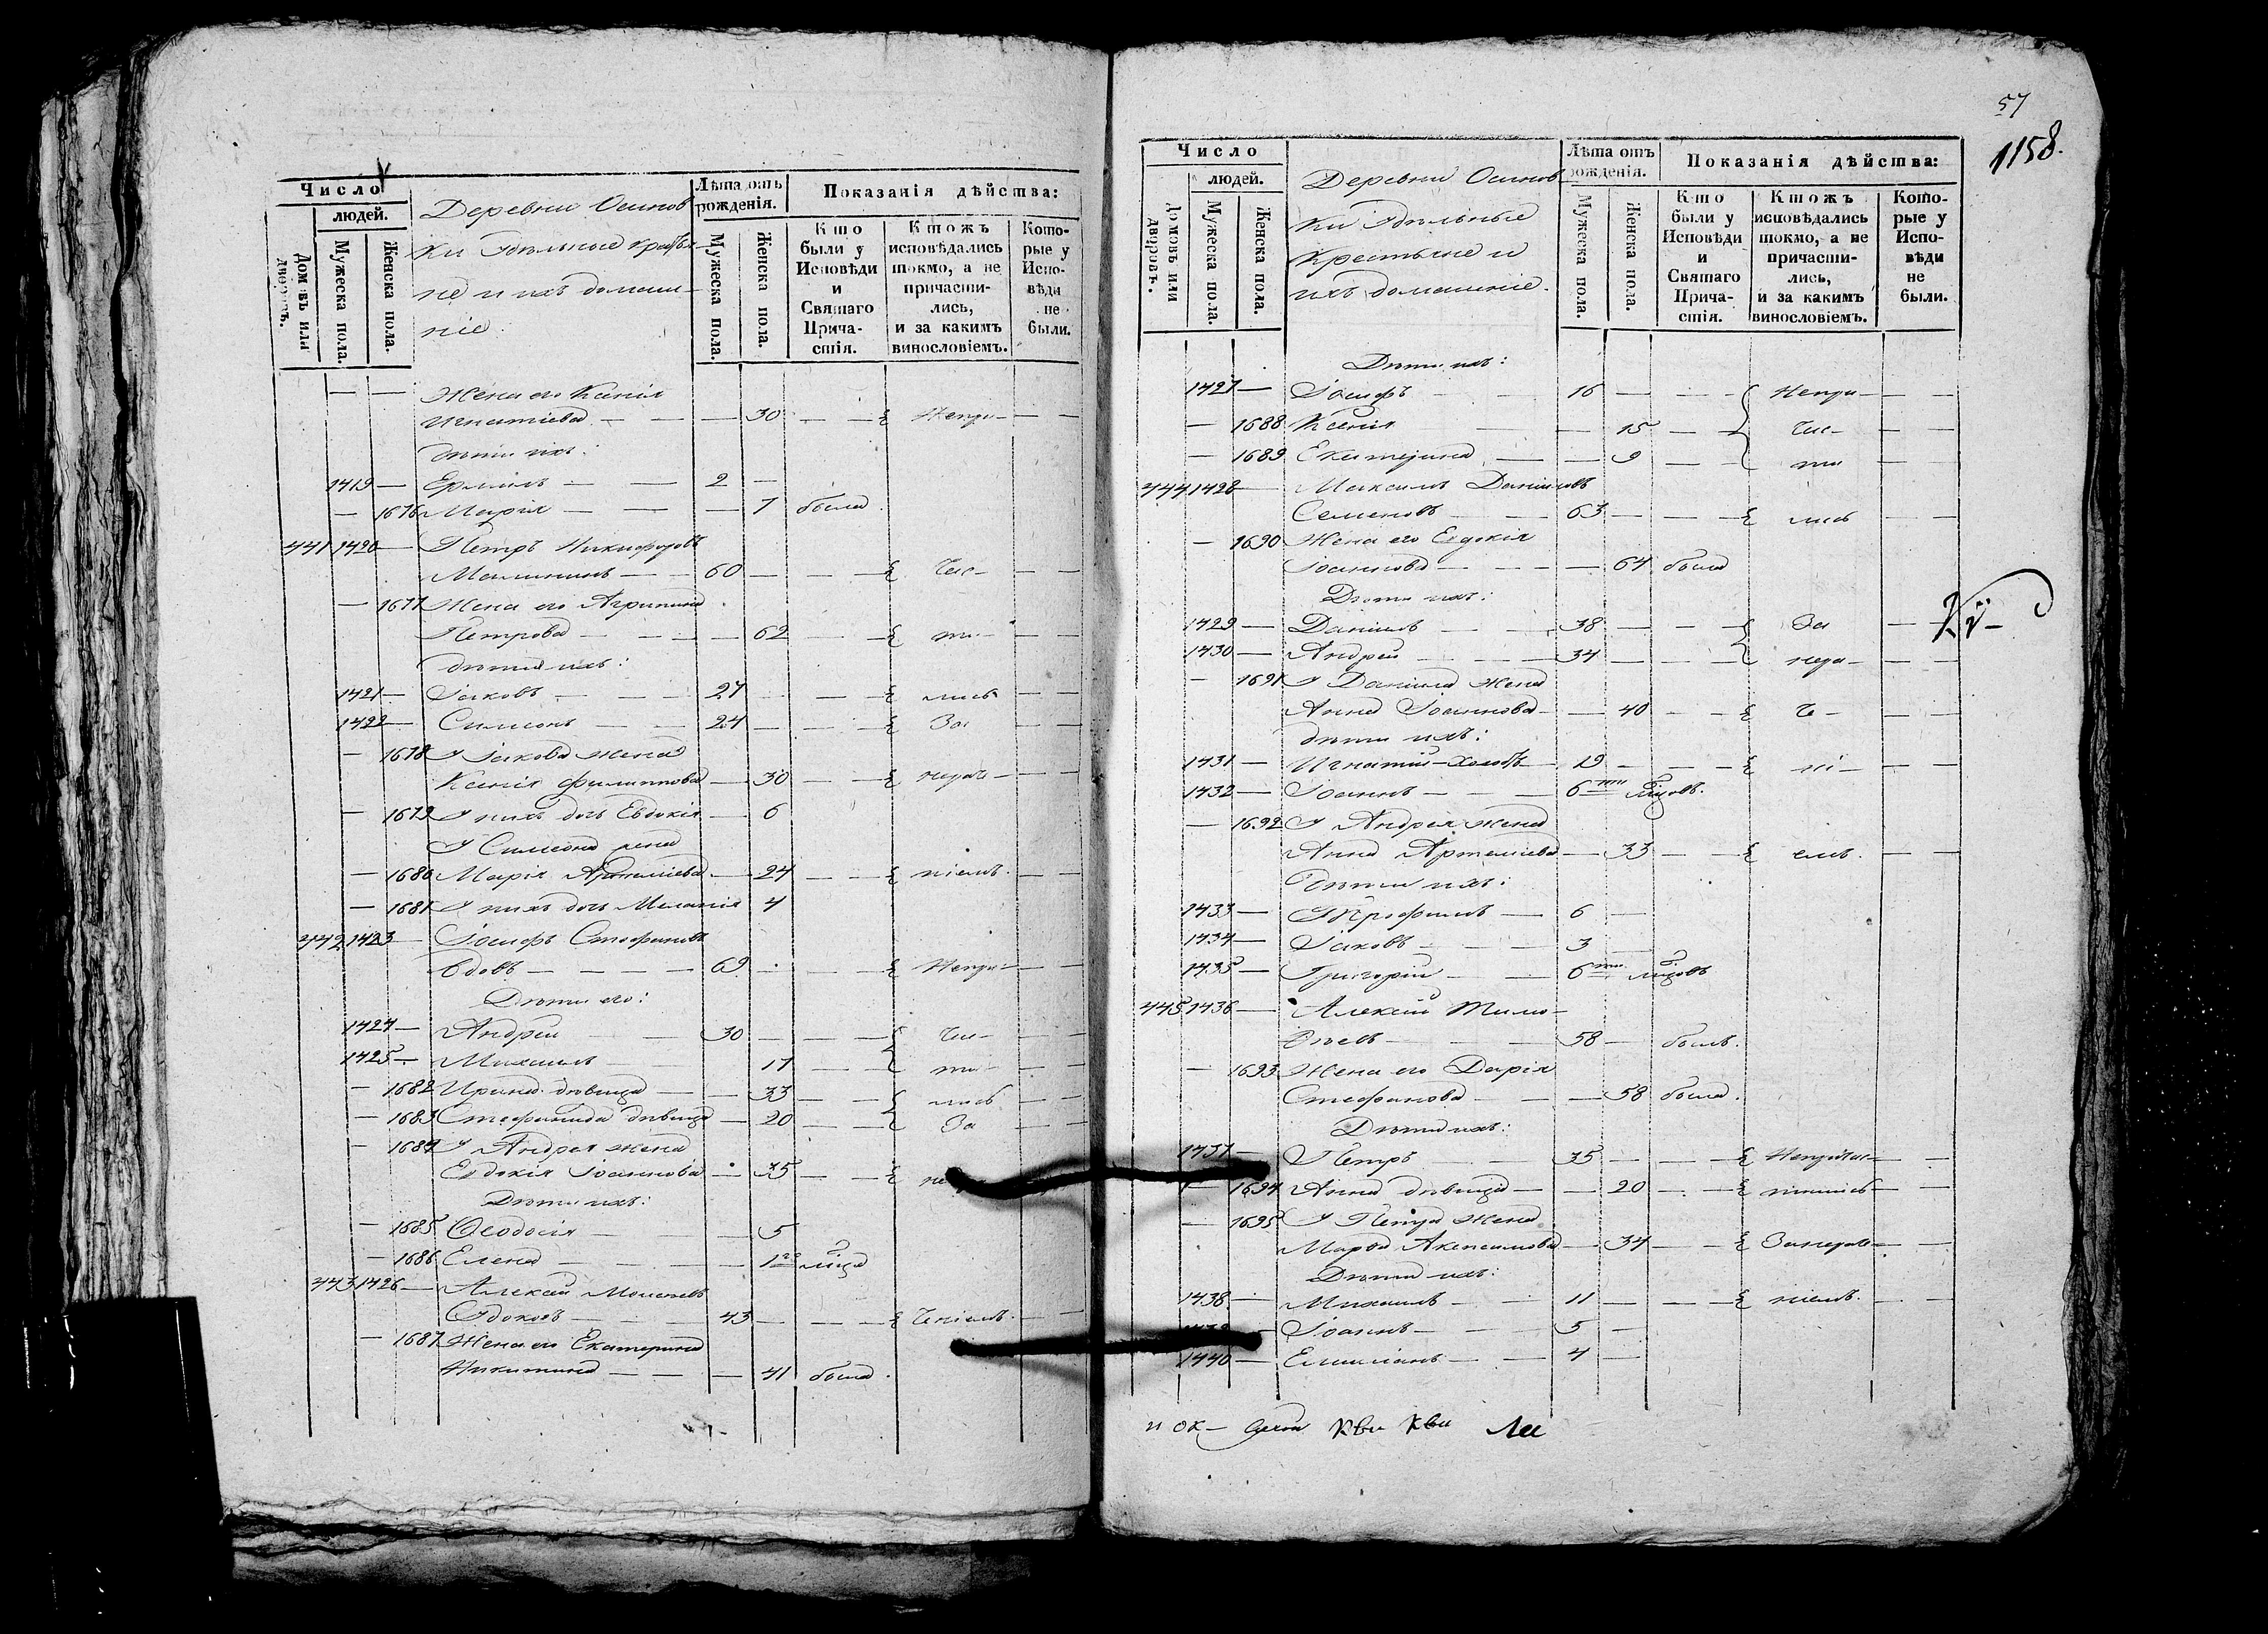 Число
людей.
Домовъ или дворовъ.
Мужеска пола.
Женска пола.
Деревни Осинов
ки Удѣльные крестья-
не и ихъ домаш-
ніе.
Лѣта отъ рожденія.
Мужеска пола.
Женска пола.
Показанія дѣйства:
Кто были у Исповѣди и Святаго Прича-стія.
Ктожъ исповѣдались токмо, а не причасти-лись, и за какимъ винословіемъ.
Кото-рые у Испо-вѣди не были.
Жена его Ксенія
Игнатіева 30 Непри-
дѣти ихъ:
1419 Ермилъ 2
1676 Марія 7 была
441 1420 Петръ Никифоровъ
Малининъ 60 Час-
1677 Жена его Агрипина
Петрова 62 ти-
дѣти ихъ:
1421 Іаковъ 27 лись
1422 Симеонъ 24 За
1678 У Іакова жена
Ксенія Филиппова 30 нерач-
1679 У нихъ дочь Евдокія 6
У Симеона жена
1680 Марія Артеміева 24 ніемъ.
1681 У нихъ дочь Меланія 4
442 1423 Іосифъ Стефановъ
Вдовъ 69 Непри-
Дѣти его:
1424 Андрей 30 Час-
1425 Михаилъ 17 ти-
1682 Ирина дѣвица 33 лись
1683 Стефанида дѣвица 20 За
1684 У Андрея жена
Евдокія Іоаннова 35
Дѣти ихъ:
1685 Ѳеодосія 5
1686 Елена 1го мца
443 1426 Алексѣй Моисеевъ
43 Ченіемъ.
1687 Жена его Екатерина
Никитина 41 была.
57
1158.
Число
людей.
Домовъ или дворовъ.
Мужеска пола.
Женска пола.
Деревни Осинов
ки Удѣльные
Крестьяне и
ихъ домашніе.
Лѣта отъ рожденія.
Мужеска пола.
Женска пола.
Показанія дѣйства:
Кто были у Исповѣди и Святаго Прича-стія.
Ктожъ исповѣдались токмо, а не причасти-лись, и за какимъ винословіемъ.
Кото-рые у Испо-вѣди не были.
Дѣти ихъ:
1427 Іосифъ 16 Непри-
1688 Ксенія 15 Час-
1689 Екатерина 9 ти
444 1428 Максимъ Даніиловъ
Семеновъ 63 лись
1690 Жена его Евдокія
Іоаннова 64 была
Дѣти ихъ:
1429 Даніилъ 38 За
1430 Андрей 34 нера-
1691 У Даніила жена
Анна Іоаннова 40 Че-
дѣти ихъ:
1431 Игнатій-Холостъ 19 ні-
1432 Іоаннъ 6ти мцовъ.
1692 У Андрея жена
Анна Артеміева 33 емъ.
Дѣти ихъ:
1433 Трофимъ 6
1434 Іаковъ 3
1435 Григорій 6ти мцовъ
445 1436 Алексѣй Тимо-
ѳеевъ 58 былъ.
1693 Жена его Дарія
Стефанова 58 была.
Дѣти ихъ:
1437 Петръ 35 Непричас-
1694 Анна дѣвица 20 тились
1695 У Петра жена
Марѳа Акепсимова 34 Занераче-
Дѣти ихъ:
1438 Михаилъ 11 ніемъ.
Іоаннъ 5
1440 Емиліанъ 4